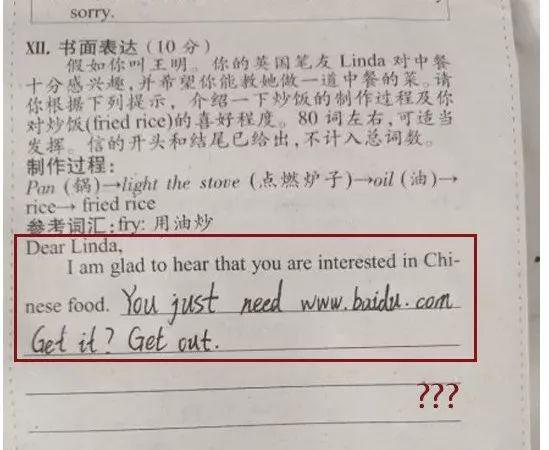 sorry.
XII. 书面表达(10分)
假如你叫王明。你的英国笔友 Linda 对中餐
十分感兴趣,并希望你能教她做一道中餐的菜。请
你根据下列提示，介绍一下炒饭的制作过程及你
对炒饭(fried rice)的喜好程度。80 词左右,可适当
发挥。信的开头和结尾已给出,不计入总词数。
制作过程:
Pan (锅)→light the stove (点燃炉子)→oil (油)→
rice→ fried rice
参考词汇:fry: 用油炒
Dear Linda,
I am glad to hear that you are interested in Chi-
nese food. You just need www.baidu.com
Get it? Get out.
???